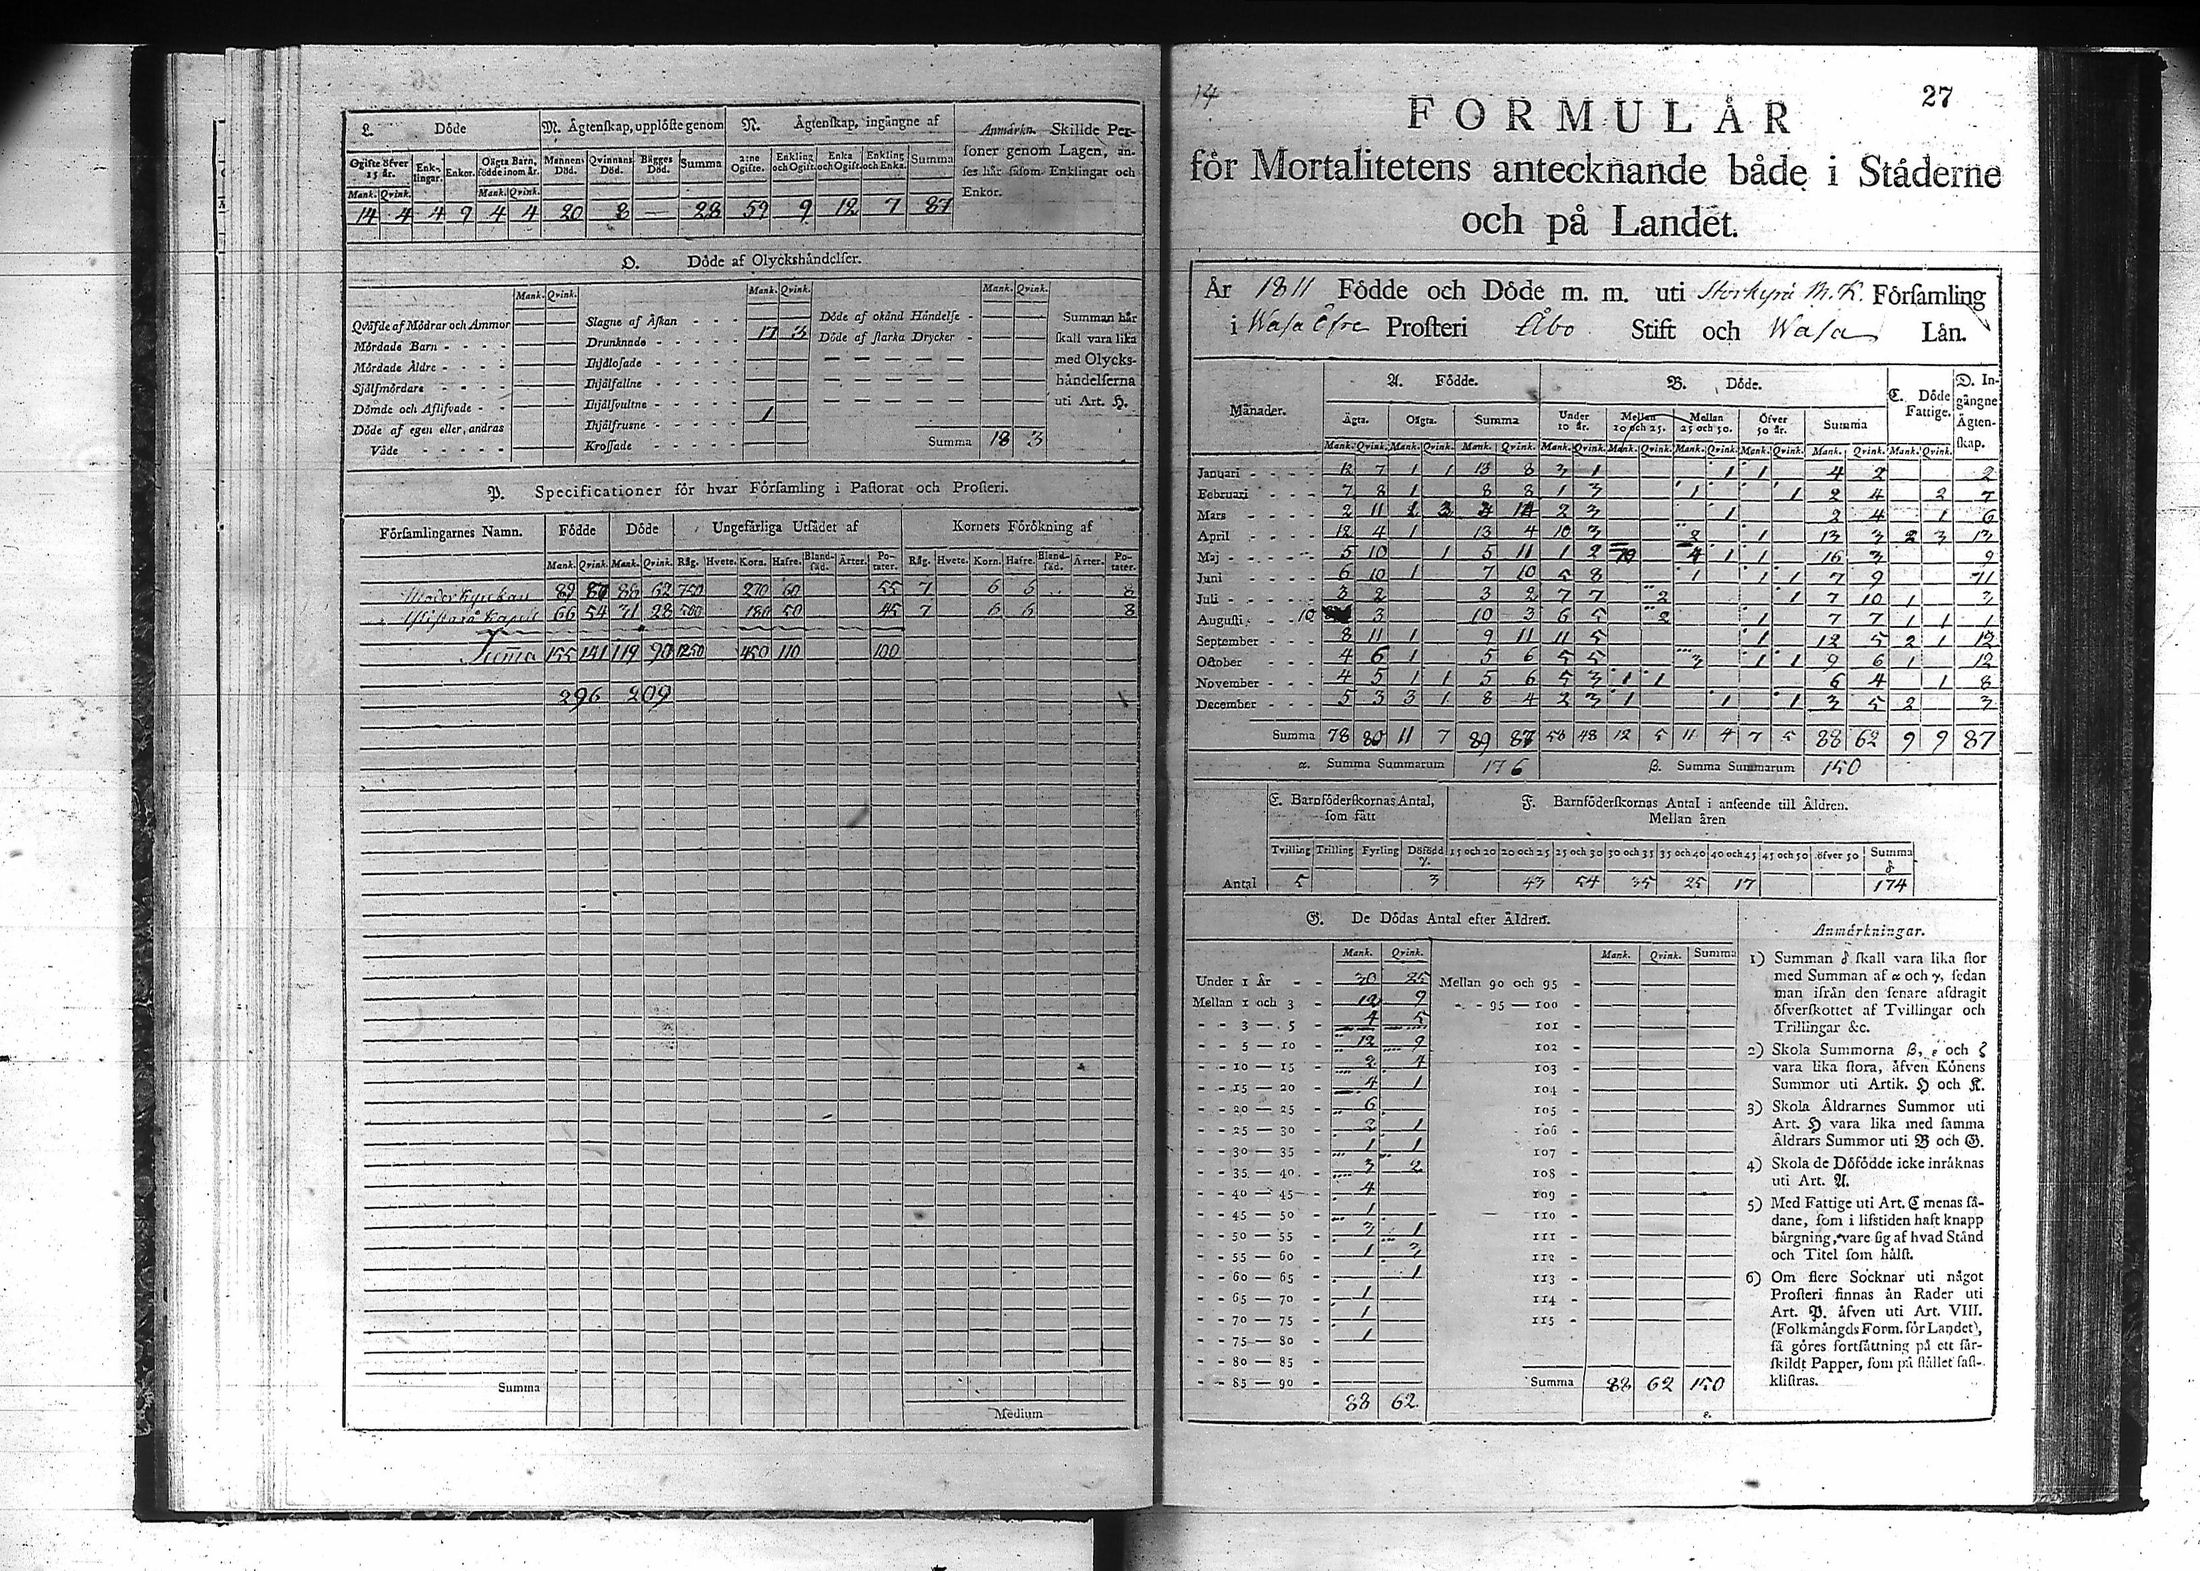 L. Döde
M. Ägtenskap, upplöste genom
N. Ägtenskap, ingångne af
Anmärkn. Skillde Personer genom Lagen, anses här såsom Enklingar och Enkor.
Ogifte öfver 15 år. Enklingar. Enkor. Oägta Barn, födde inom år. Mannens Död. Qvinnans Död. Bägges Död. Summa 2:ne Ogifte. Enkling och Ogift. Enka och Ogift. Enkling och Enka. Summa
Mank. Qvink. Mank. Qvink.
14 4 4 9 4 4 20 8 — 28 59 9 12 7 87
O. Döde af Olyckshändelser.
Mank. Qvink. Mank. Qvink. Mank. Qvink.
Qväfde af Mödrar och Ammor
Mördade Barn
Mördade Äldre
Självmördare
Dömde och Aflifvade
Döde af egen eller andras Våde
Slagne af Åskan
Drunknade 17 3
Ihjälosade
Ihjälfallne
Ihjälsvultne
Ihjälfrusne 1
Krossade
Döde af okänd Händelse
Döde af starka Drycker
Summa 18 3
Summan här skall vara lika med Olyckshändelserna uti Art. H.
P. Specificationer för hvar Församling i Pastorat och Prosteri.
Församlingarnes Namn. Födde Döde Ungefärliga Utsädet af Kornets Förökning af
Mank. Qvink. Mank. Qvink. Råg. Hvete. Korn. Hafre. Blandsäd. Ärter. Potater. Råg. Hvete. Korn. Hafre. Blandsäd. Ärter. Potater.
Moderkyrkan 89 87 88 62 750 270 60 55 7 6 6 8
66 54 31 28 500 180 50 45 7 6 6 8
Summa 155 141 119 90 1250 450 110 100
296 209
Summa
Medium
14
27
FORMULÄR
för Mortalitetens antecknande både i Städerne
och på Landet.
År 1811 Födde och Döde m. m. uti Storkyro M. K. Församling
i Wasa Öfre Prosteri Åbo Stift och Wasa Län.
Månader. A. Födde. B. Döde. C. Döde Fattige. D. Ingångne Ägtenskap.
Ägta. Oägta. Summa Under 10 år. Mellan 10 och 25. Mellan 25 och 50. Öfver 50 år. Summa
Mank. Qvink. Mank. Qvink. Mank. Qvink. Mank. Qvink. Mank. Qvink. Mank. Qvink. Mank. Qvink. Mank. Qvink. Mank. Qvink.
Januari 12 7 1 1 13 8 3 1 1 1 4 2 2
Februari 7 8 1 8 8 1 3 1 1 2 4 2 7
Mars 2 11 3 2 3 1 2 4 1 6
April 12 4 1 13 4 10 3 2 1 13 3 2 3 13
Maj 5 10 1 5 11 1 2 10 4 1 1 16 3 9
Juni 6 10 1 7 10 5 8 1 1 1 7 9 11
Juli 3 2 3 2 7 7 2 1 7 10 1 3
Augusti 10 3 10 3 6 5 2 1 7 7 1 1 1
September 8 11 1 9 11 11 5 1 12 5 2 1 12
October 4 6 1 5 6 5 5 3 1 1 9 6 1 12
November 4 5 1 1 5 6 5 3 1 1 6 4 1 8
December 5 3 3 1 8 4 2 3 1 1 1 3 5 2 3
Summa 78 80 11 7 89 87 58 48 12 5 11 4 7 5 88 62 9 9 87
α. Summa Summarum 176 β. Summa Summarum 150
E. Barnföderskornas Antal, som fått
F. Barnföderskornas Antal i anseende till Åldren.
Mellan åren
Tvilling Trilling Fyrling Döfödd γ. 15 och 20 20 och 25 25 och 30 30 och 35 35 och 40 40 och 45 45 och 50 öfver 50 Summa δ
Antal 5 3 43 54 35 25 17 174
G. De Dödas Antal efter Åldren.
Mank. Qvink. Mank. Qvink. Summa
Under 1 År 30 25 Mellan 90 och 95
Mellan 1 och 3 12 9 95 — 100
3 — 5 4 5 101
5 — 10 12 9 102
10 — 15 2 4 103
15 — 20 4 1 104
20 — 25 6 105
25 — 30 2 1 106
30 — 35 1 1 107
35 — 40 3 2 108
40 — 45 4 109
45 — 50 1 110
50 — 55 3 1 111
55 — 60 1 3 112
60 — 65 1 113
65 — 70 1 114
70 — 75 1 115
75 — 80 1
80 — 85
85 — 90 Summa 88 62 150
88 62
Anmärkningar.
1) Summan δ skall vara lika stor
med Summan af α och γ, sedan
man ifrån den senare afdragit
öfverskottet af Tvillingar och
Trillingar &c.
2) Skola Summorna β, ε och ζ
vara lika stora, äfven Könens
Summor uti Artik. H och K.
3) Skola Äldrarnes Summor uti
Art. H vara lika med samma
Äldrars Summor uti B och G.
4) Skola de Döfödde icke inräknas
uti Art. A.
5) Med Fattige uti Art. C menas så-
dane, som i lifstiden haft knapp
bärgning, vare sig af hvad Stånd
och Titel som hälst.
6) Om flere Socknar uti något
Prosteri finnas än Rader uti
Art. P. äfven uti Art. VIII.
(Folkmängds Form. för Landet),
så göres fortsättning på ett sär-
skildt Papper, som på stället fast-
klistras.